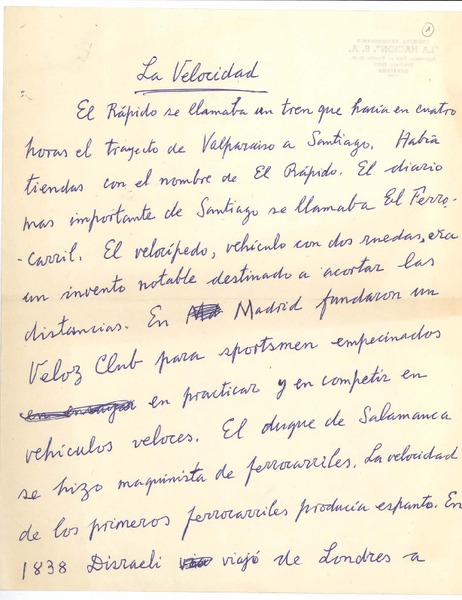 1
"LA NACION", S. A.
La Velocidad
El Rápido se llamaba un tren que hacía en cuatro
horas el trayecto de Valparaiso a Santiago. Había
tiendas con el nombre de El Rápido. El diario
mas importante de Santiago se llamaba El Ferro-
-carril. El velocípedo, vehículo con dos ruedas, era
un invento notable destinado a acortar las
distancias. En Madrid fundaron un
Veloz Club para sportsmen empecinados
en practicar y en competir en
vehículos veloces. El duque de Salamanca
se hizo maquinista de ferrocarriles. La velocidad
de los primeros ferrocarriles producía espanto. En
1838 Disraeli viajó de Londres a